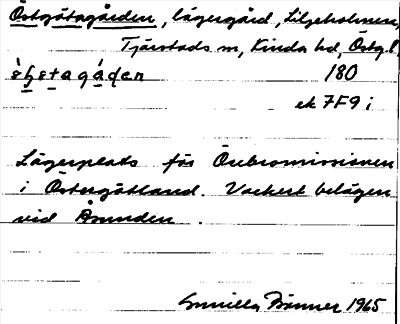 Östgötagården, lägergård, Liljeholmen,
Tjärstads sn, Kinda hd, Östg.l.
180
ek 7F9 i
Lägerplats för Örebromissionen
i Östergötland. Vackert belägen
vid Åsunden.
Gunilla 1965